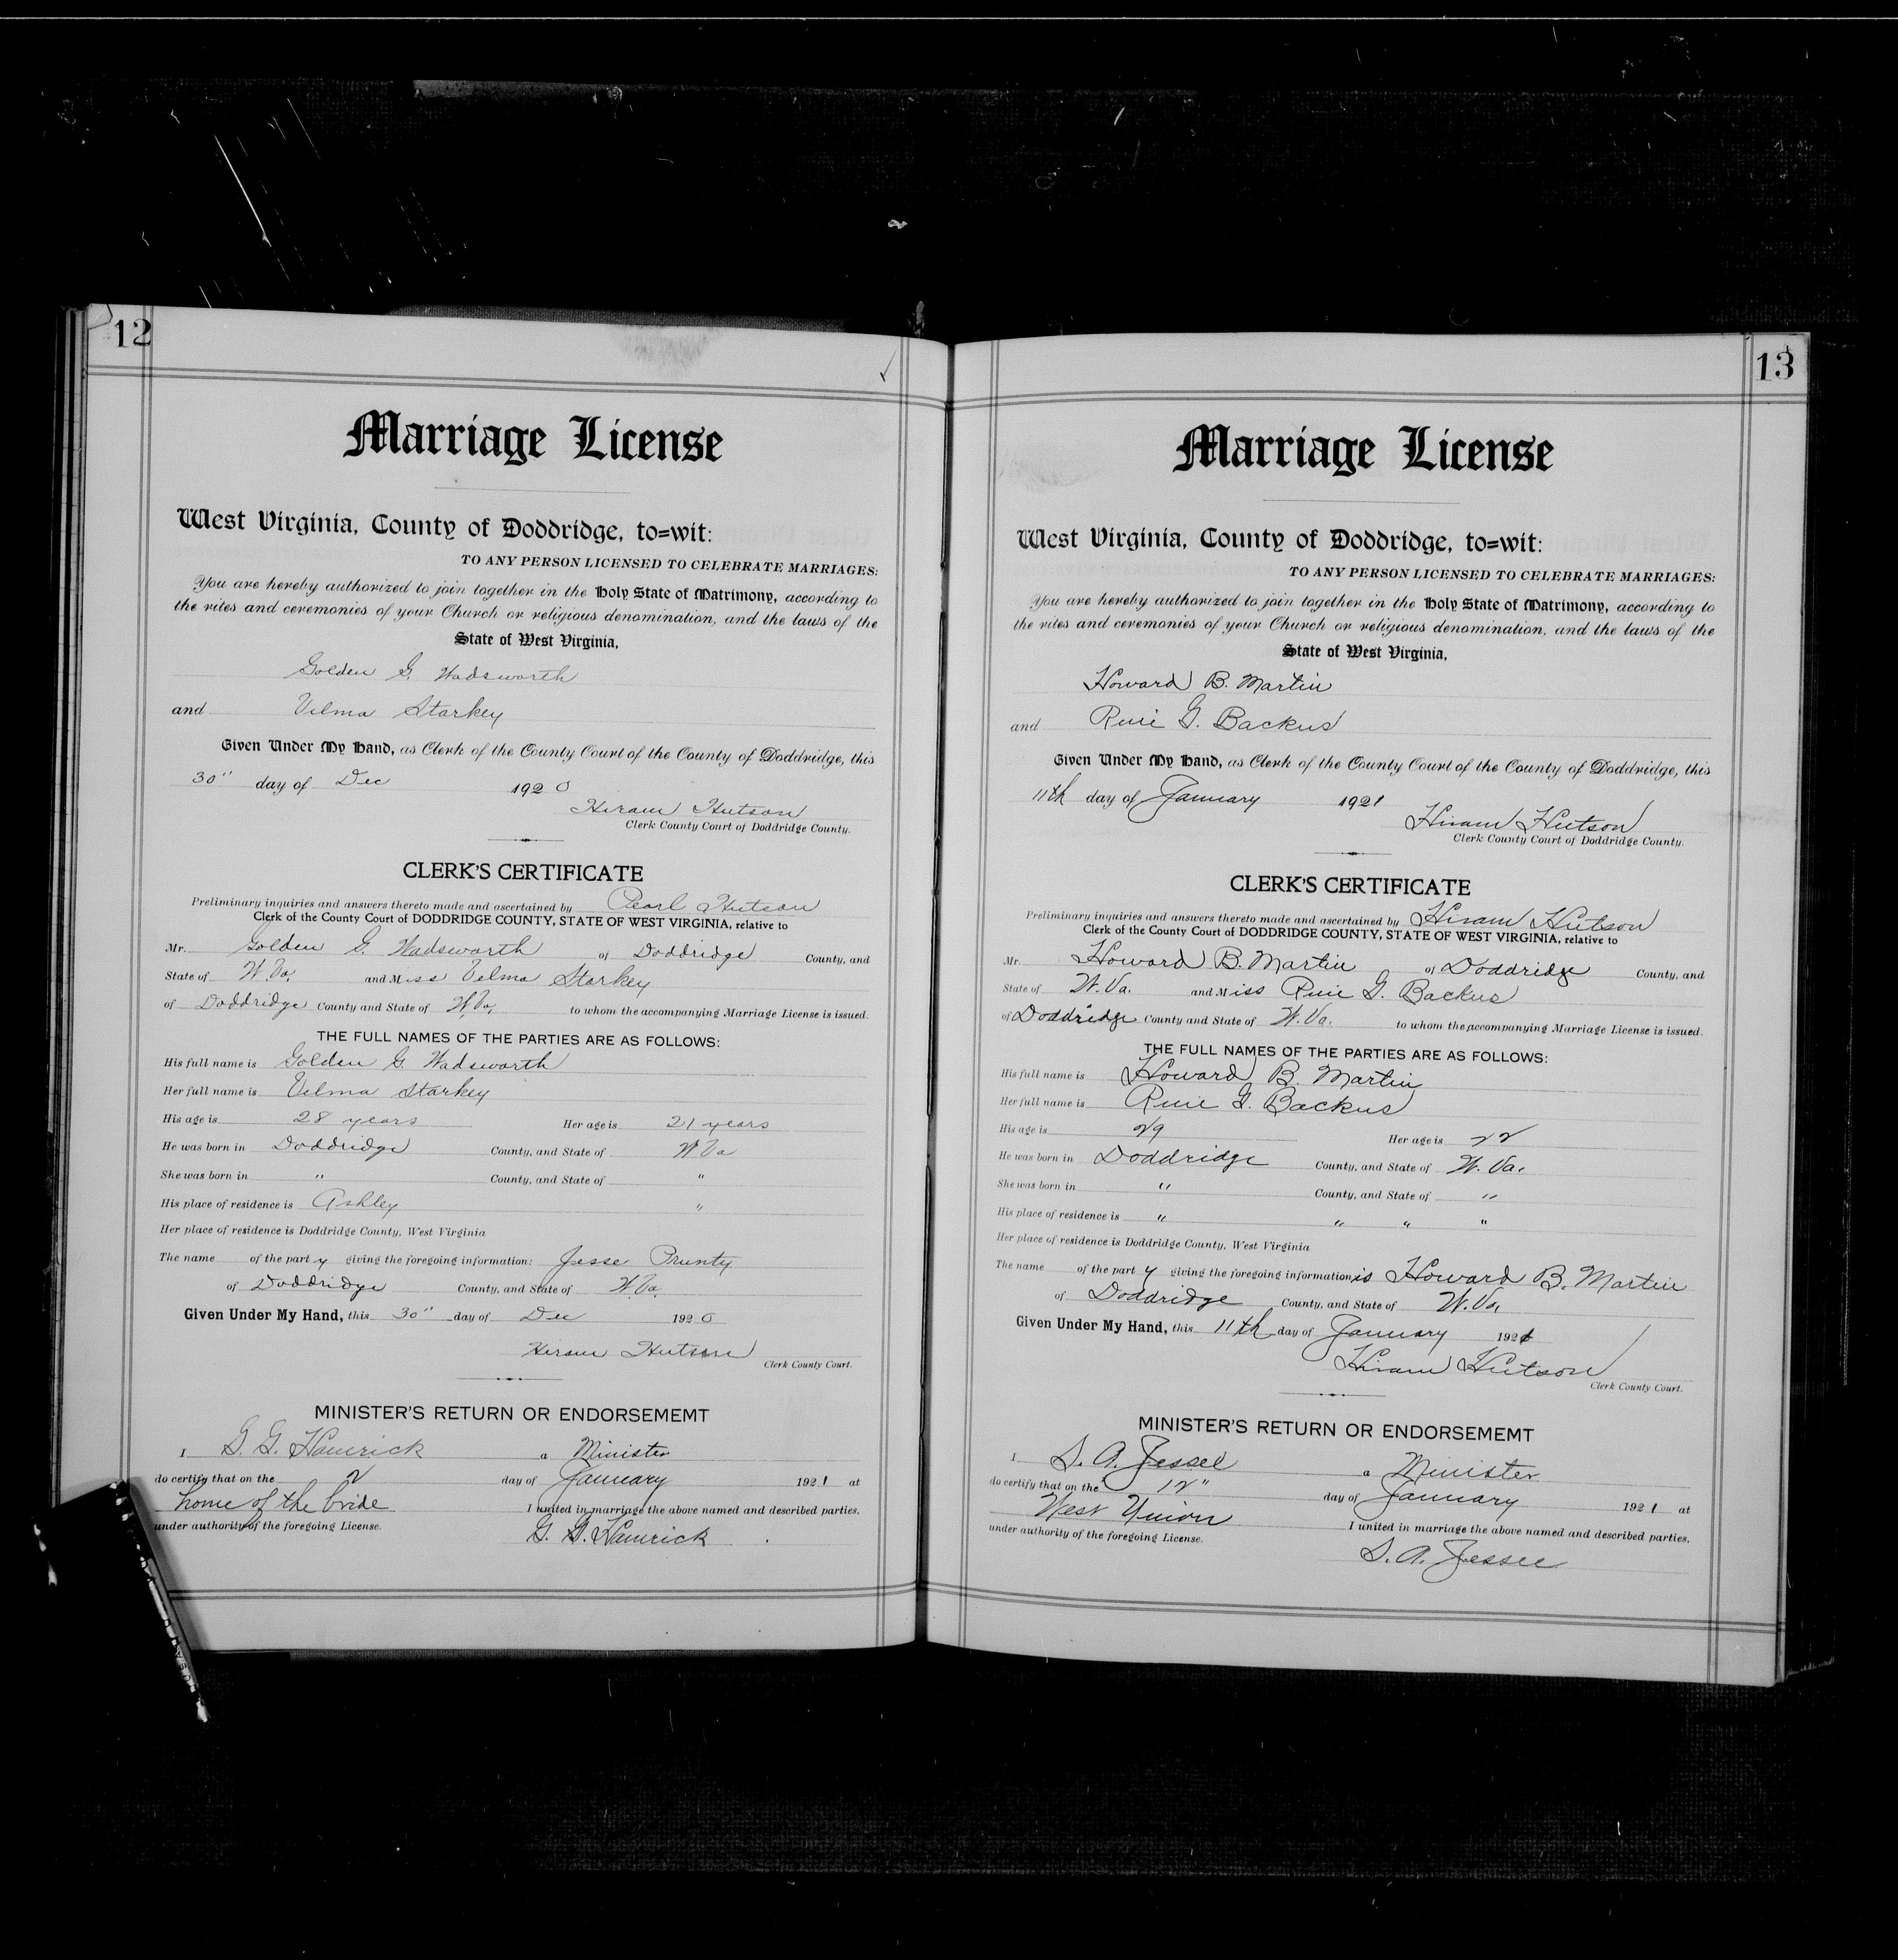 12
Marriage License
West Virginia, County of Doddridge, to=wit:
TO ANY PERSON LICENSED TO CELEBRATE MARRIAGES:
You are hereby authorized to join together in the Holy State of Matrimony, according to
the rites and ceremonies of your Church or religious denomination, and the laws of the
State of West Virginia,
Golden G. Wadsworth
and Velma Starkey
Given Under My Hand, as Clerk of the County Court of the County of Doddridge, this
30" day of Dec 1920
Hiram Hutson
Clerk County Court of Doddridge County.
CLERK'S CERTIFICATE
Preliminary inquiries and answers thereto made and ascertained by Pearl Hutson
Clerk of the County Court of DODDRIDGE COUNTY, STATE OF WEST VIRGINIA, relative to
Mr. Golden G. Wadsworth of Doddridge County, and
State of W.Va. and Miss Velma Starkey
of Doddridge County and State of W.Va, to whom the accompanying Marriage License is issued.
THE FULL NAMES OF THE PARTIES ARE AS FOLLOWS:
His full name is Golden G. Wadsworth
Her full name is Velma Starkey
His age is 28 years Her age is 21 years
He was born in Doddridge County, and State of W Va
She was born in " County, and State of "
His place of residence is Ashley "
Her place of residence is Doddridge County, West Virginia
The name of the party giving the foregoing information: Jesse Prunty
of Doddridge County, and State of W.Va.
Given Under My Hand, this 30" day of Dec 1920
Hiram Hutson
Clerk County Court.
MINISTER'S RETURN OR ENDORSEMEMT
I G. G. Hamrick a Minister
do certify that on the 2 day of January 1921 at
home of the bride I united in marriage the above named and described parties,
under authority of the foregoing License.
G. G. Hamrick
13
Marriage License
West Virginia, County of Doddridge, to=wit:
TO ANY PERSON LICENSED TO CELEBRATE MARRIAGES:
You are hereby authorized to join together in the Holy State of Matrimony, according to
the rites and ceremonies of your Church or religious denomination, and the laws of the
State of West Virginia,
Howard B. Martin
and Ruie G. Backus
Given Under My Hand, as Clerk of the County Court of the County of Doddridge, this
11th day of January 1921
Hiram Hutson
Clerk County Court of Doddridge County.
CLERK'S CERTIFICATE
Preliminary inquiries and answers thereto made and ascertained by Hiram Hutson
Clerk of the County Court of DODDRIDGE COUNTY, STATE OF WEST VIRGINIA, relative to
Mr. Howard B. Martin of Doddridge County, and
State of W. Va. and Miss Ruie G. Backus
of Doddridge County and State of W. Va. to whom the accompanying Marriage License is issued.
THE FULL NAMES OF THE PARTIES ARE AS FOLLOWS:
His full name is Howard B. Martin
Her full name is Ruie G. Backus
His age is 29 Her age is 22
He was born in Doddridge County, and State of W. Va.
She was born in " County, and State of "
His place of residence is " " " "
Her place of residence is Doddridge County, West Virginia
The name of the party giving the foregoing information is Howard B. Martin
of Doddridge County, and State of W. Va,
Given Under My Hand, this 11th day of January 1921
Hiram Hutson
Clerk County Court.
MINISTER'S RETURN OR ENDORSEMEMT
I S. A. Jessee a Minister
do certify that on the 12" day of January 1921 at
West Union I united in marriage the above named and described parties,
under authority of the foregoing License.
S. A. Jessee